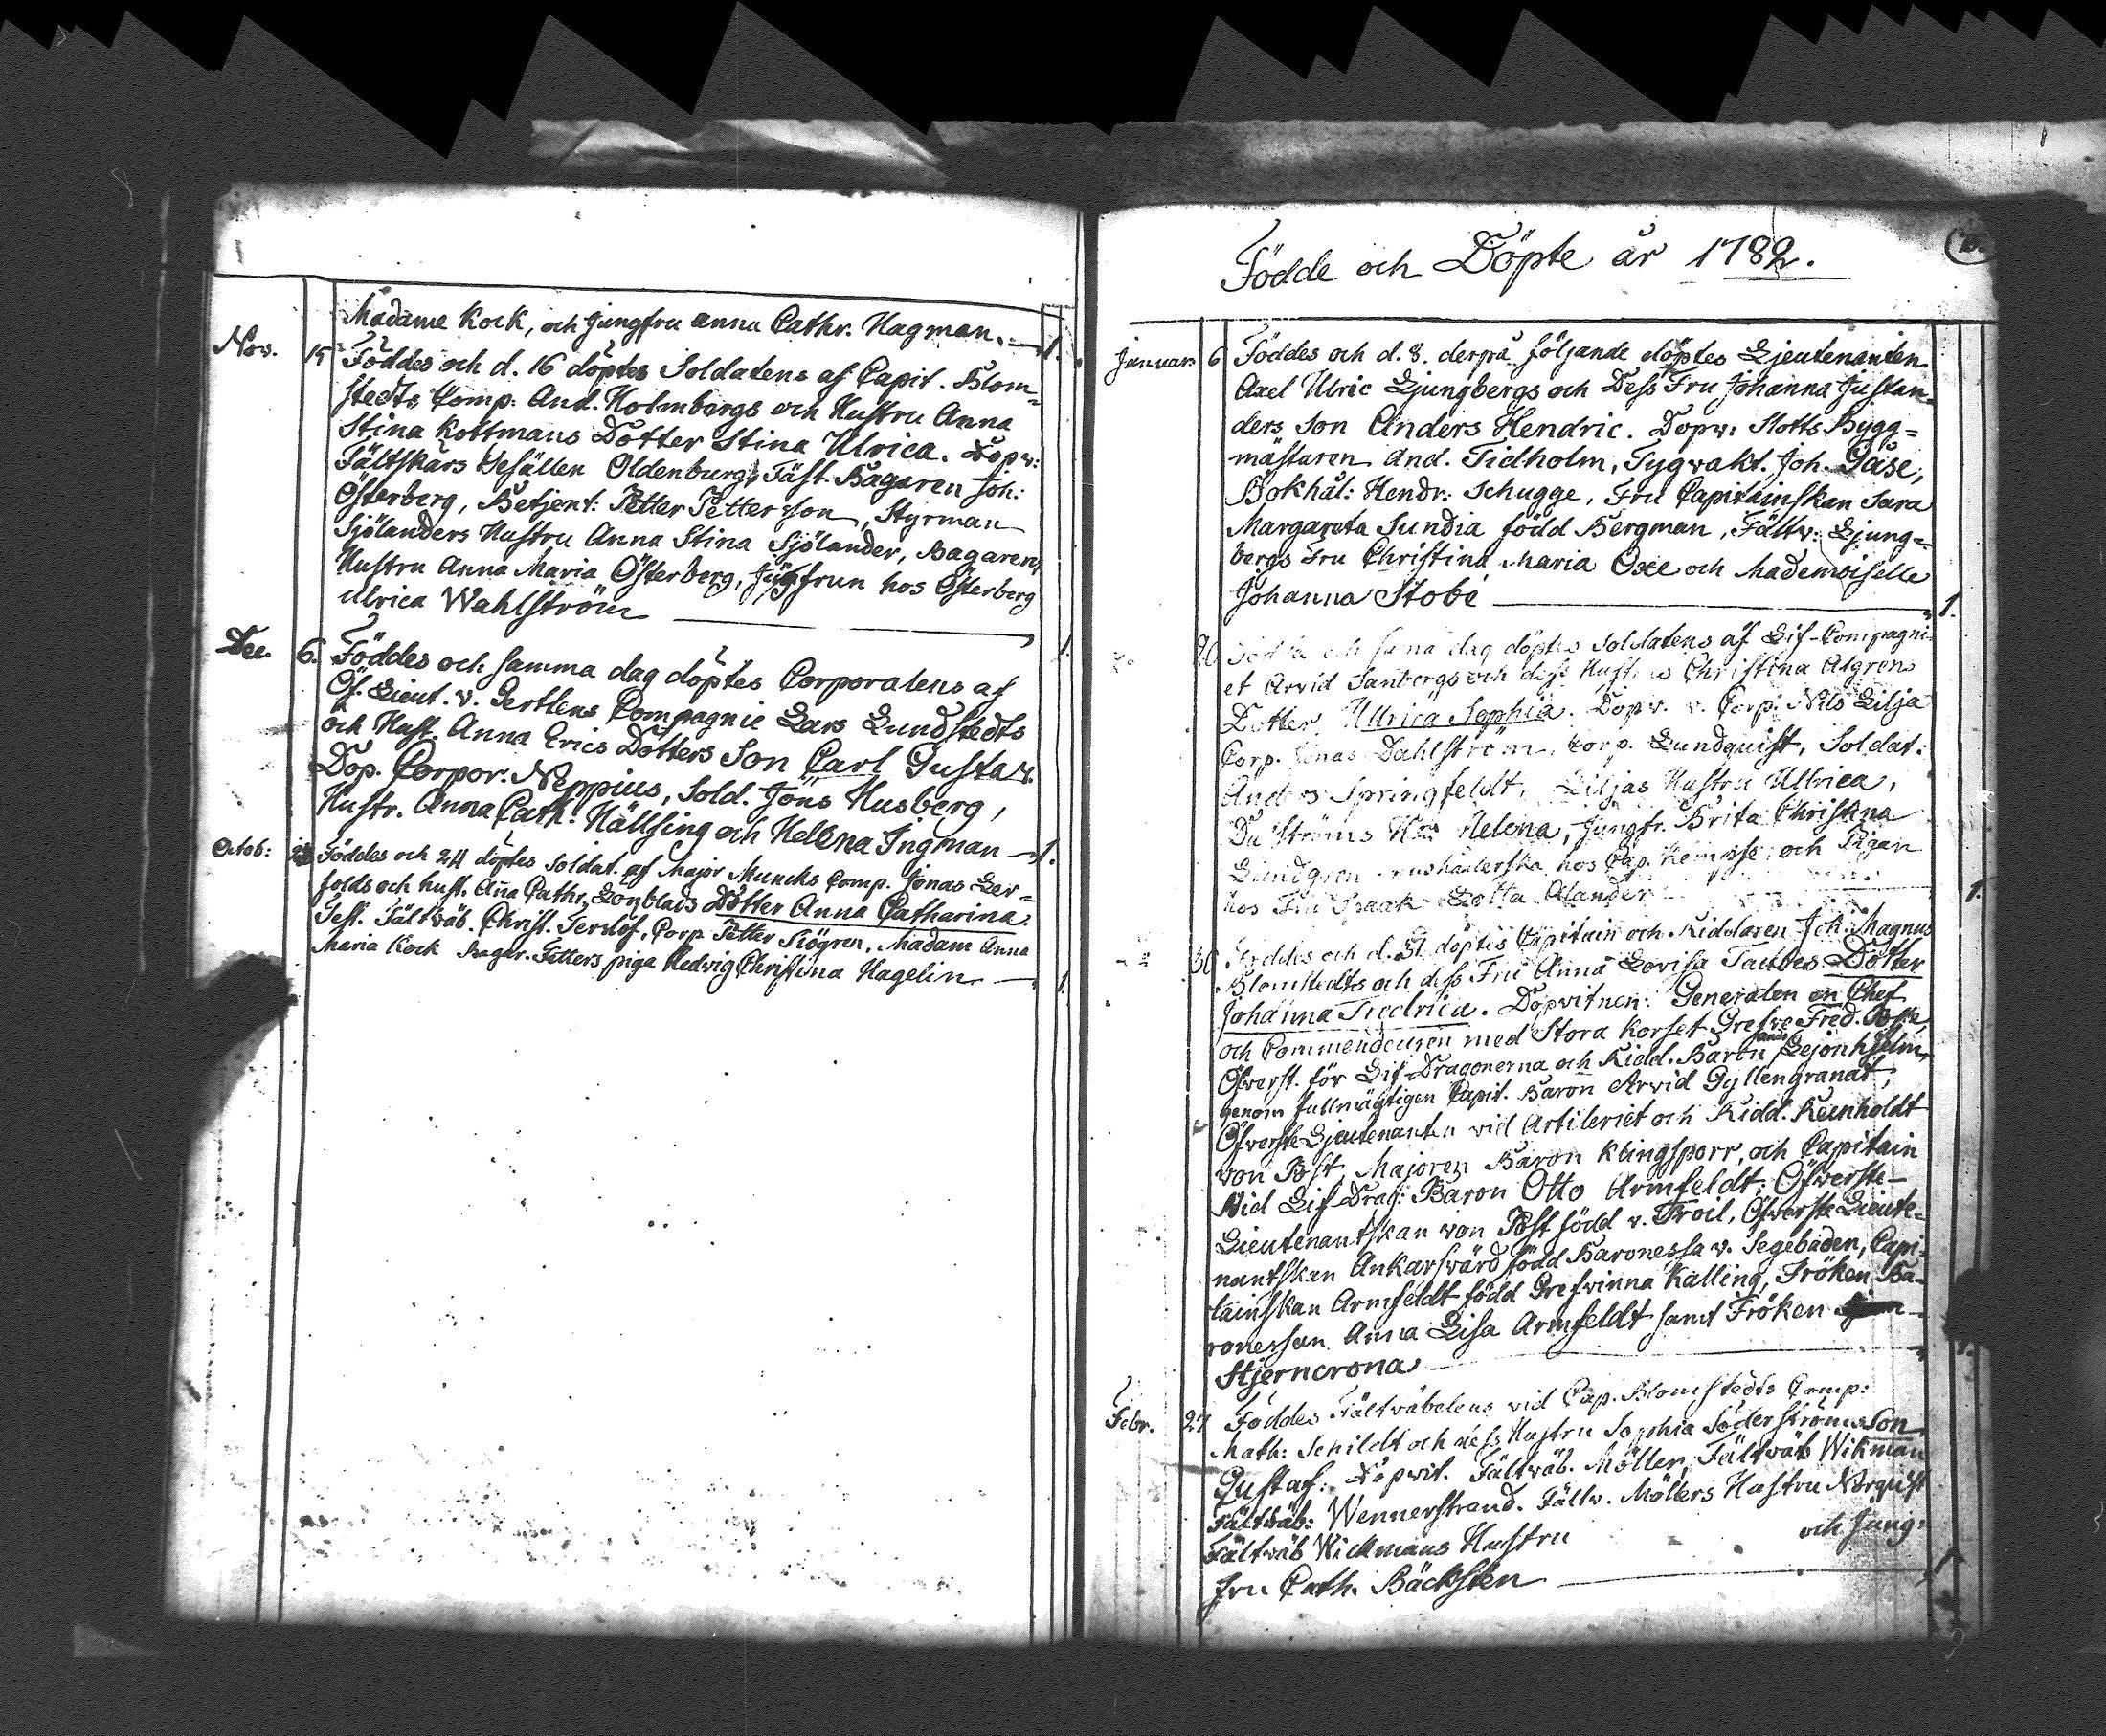 Madame Kock, och Jungfru Anna Cathr. Hagman. — 1.
Nov. 15 Föddes och d. 16 döptes Soldatens af Capit. Blom=
stedts Comp: And. Holmbergs och Hustru Anna
Stina Kottmans Dotter Stina Ulrica. Dopw:
Fältskärs Gesällen Oldenburg, Fäst. Bagaren Joh:
Österberg, Betjent: Petter Petterson, Styrman
Sjölanders Hustru Anna Stina Sjölander, Bagarens
Hustru Anna Maria Österberg, Jungfrun hos Österberg
Ulrica Wahlström — 1.
Dec. 6. Föddes och samma dag döptes Corporalens af
Öf. Lieut. v. Gertlens Compagnie Lars Lundstedts
och Hust. Anna Erics Dotters Son Carl Gustav.
Dop. Corpor. Neppius, Sold. Jöns Husberg,
Hustr. Anna Cath. Hällsing och Helena Ingman — 1.
Octob: Föddes och 24 döptes Soldat. af Major Muncks Comp. Jonas Ler=
folds och hust. Aña Cathr. Lönblads Dotter Anna Catharina.
Test. Fältwäb. Christ. Terslöf, Corp. Petter Siögren, Madam Anna
Maria Kock Bagar. Fetters piga Hedwig Christina Hagelin. — 1.
Födde och Döpte år 1782.
Januari 6 Föddes och d. 8. derpå följande döptes Ljeutenanten
Axel Ulric Ljungbergs och Dess Fru Johanna Justan=
ders Son Anders Hendric. Dopw: Slotts Bygg=
mästaren And. Tidholm, Tygvakt. Joh. Gåse,
Bokhål: Hendr: Schugge, Fru Capitainskan Sara
Margareta Sundia född Bergman, Fältw: Ljung=
bergs Fru Christina Maria Oxe och Mademoiselle
Johanna Stobé — 1.
20 Föddes och sama dag döptes Soldatens af Lif-Compagni-
et Arvid Sanbergs och dess Hustrus Christina Algrens
Dotter Ulrica Sophia. Dopv. v. Corp. Nils Lilja
Corp. Jonas Dahlström, Corp. Lundquist, Soldat:
Anders Springfeldt, Liljas Hustru Ullrica,
Da Ströms Helena, Jungfr. Brita Christina
Lundgren hushållerska hos Cap. och Pigan
hos Fru Lotta Alander — 1.
30 Föddes och d. 31 döptes Capitain och Riddaren Joh. Magnus
Blomstedts och dess Fru Anna Lovisa Taubes Dotter
Johanna Fredrica. Dopvitnen: Generalen en Chef
och Commendeuren med Stora Korset Grefve Fred. Posse,
Öfverst. för Lif-Dragonerna och Ridd. Baron Lejonhjelm,
genom fullmägtigen Capit. Baron Arvid Gyllengranat,
Öfverste Ljeutenanten vid Artileriet och Ridd. Reinholdt
von Post, Majoren Baron Klingsporr, och Capitain
Vid Lif Drag: Baron Otto Armfeldt; Öfwerste-
Lieutenantskan von Post född v. Troil, Öfwerste Lieute=
nantskan Ankarswärd född Baronessa v. Segebaden, Capi-
tainskan Armfeldt född Grefwinna Kalling, Fröken Ba-
ronessan Anna Lisa Armfeldt samt Fröken
Stjerncrona — 1.
Febr. 27 Föddes Fältväbelens vid Cap. Blomstedts Comp:
Math: Schildt och dess Hustru Sophia Söderströms Son
Gustaf. Dopwit. Fältwäb. Möller, Fältwäb Wikman
Fältwäb: Wennerstrand. Fältw. Möllers Hustru Norquist
Fältwäb Wickmans Hustru och Jung:
fru Cath. Bäcksten — 1